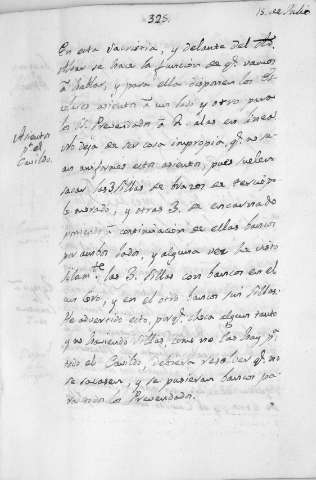 325.
15. de Julio
En esta Sacristia, y delante del
Altar se hace la funcion de qe. vamos
â hablar, y para ella disponen los
asiento â un lado y otro para
los SS. Prevendados â R
No deja de ser cosa impropia, qe. no se-
an uniformes estos asientos, pues suelen
sacar las 3. Sillas de brazos de terciope-
lo morado, y otras 3. de encarnado
poniendo â continuacion de ellas bancos
por ambos lados, y alguna vez he visto
solamte. las 3. Sillas con bancos en el
un lado, y en el otro bancos sin Sillas.
He advertido esto, porqe. choca algun tanto
y no haviendo Sillas, como no las hay, pa.
todo el Cavildo, deviera resolver qe. no
se sacasen, y se pusieran bancos pa-
ra todos los Prevendados.
Asiento
pa. el
Cavildo.